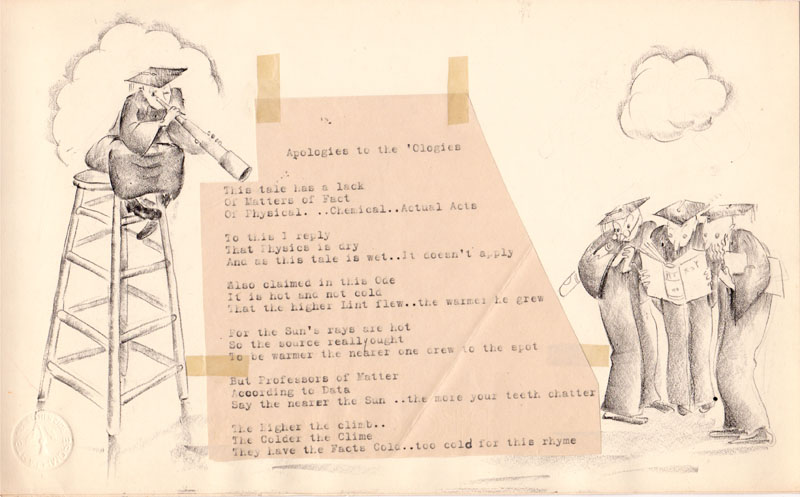 Apologies to the 'Ologies
This tale has a lack
Of Matters of Fact
Of Physical. ..Chemical..Actual Acts
To this I reply
That Physics is dry
And as this tale is wet..It doesn't apply
Also claimed in this Ode
It is hot and not cold
That the higher Lint flew..the warmer he grew
For the Sun's rays are hot
So the source really ought
To be warmer the nearer one drew to the spot
But Professors of Matter
According to Data
Say the nearer the Sun ..the more your teeth chatter
The Higher the climb..
The Colder the Clime
They have the Facts Cold..too cold for this rhyme